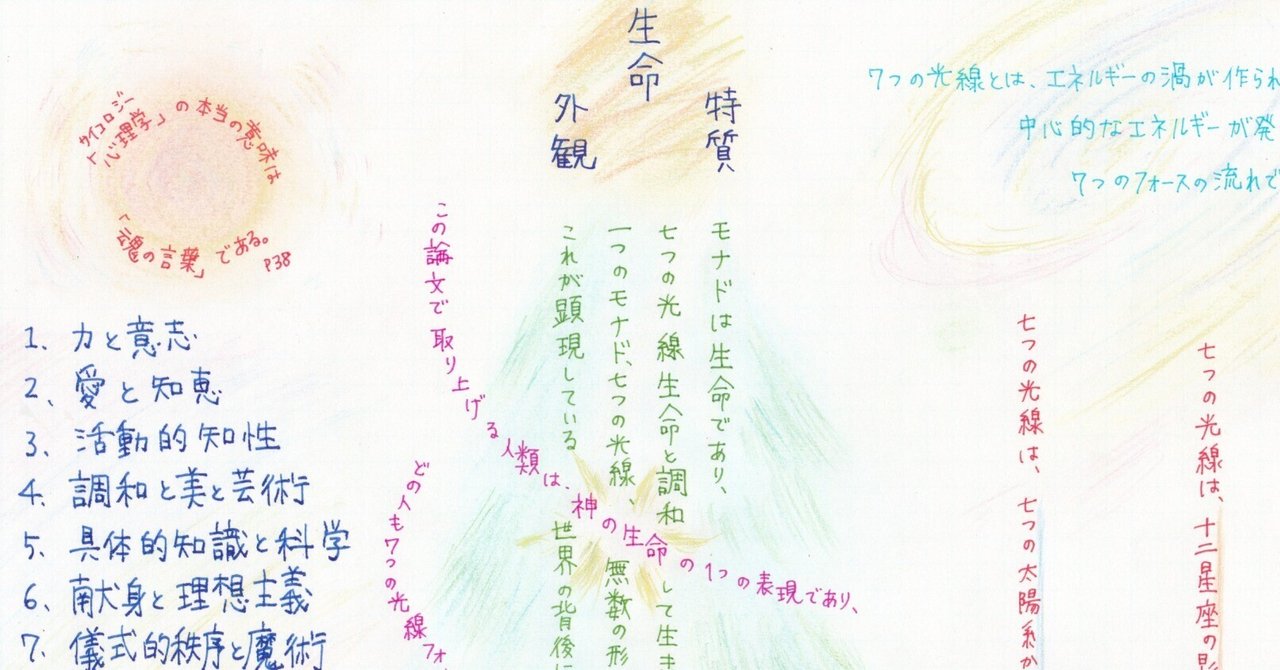 「心理学」の本当の意味は
サイコロジー
「魂の言葉」である。
P38
1、力と意志
2、愛と知恵
3、活動的知性
4、調和と美と芸術
5、具体的知識と科学
6、献身と理想主義
7、儀式的秩序と魔術
生命
外観
特質
モナドは生命であり、
七つの光線生命と調和して生き
一つのモナド、七つの光線、無数の形
これが顕現している世界の背後に
この論文で取り上げる人類は、神の生命の1つの表現であり、
どの人も7つの光線フォ
7つの光線とは、エネルギーの渦が作られ
中心的なエネルギーが発
7つのフォースの流れで
七つの光線は、七つの太陽系か
七つの光線は、十二星座の影